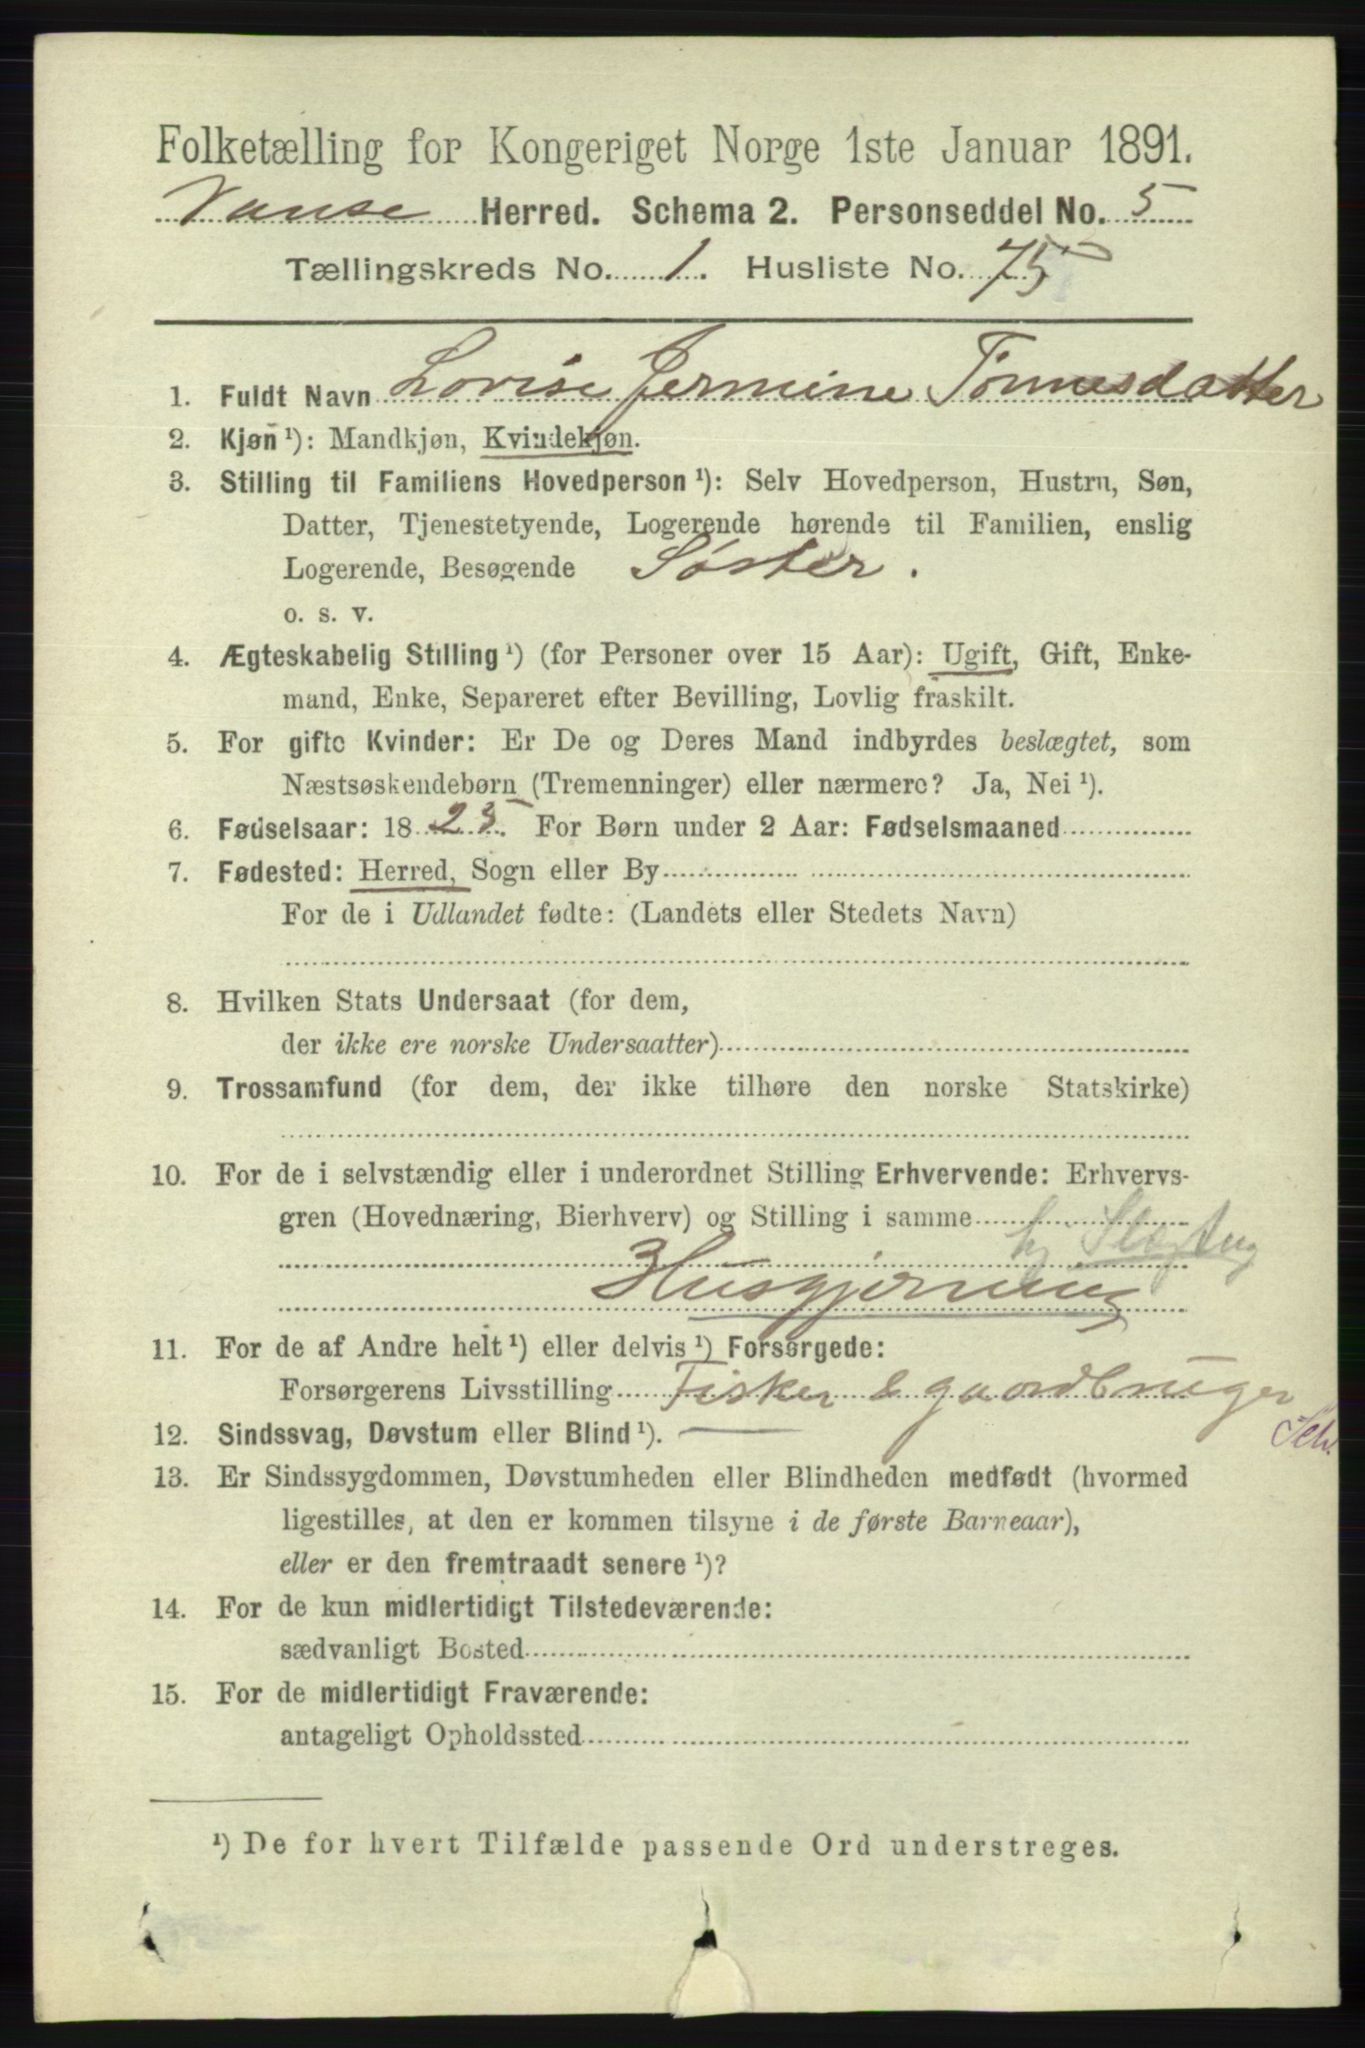 Folketælling for Kongeriget Norge 1ste Januar 1891.
Vanse Herred. Schema 2. Personseddel No. 5
Tællingskreds No. 1. Husliste No. 75
1. Fuldt Navn Lovise Jermine Tønnesdatter
2. Kjøn ¹): Mandkjøn, Kvindekjøn.
3. Stilling til Familiens Hovedperson ¹): Selv Hovedperson, Hustru, Søn,
Datter, Tjenestetyende, Logerende hørende til Familien, enslig
Logerende, Besøgende Søster.
o. s. v.
4. Ægteskabelig Stilling ¹) (for Personer over 15 Aar): Ugift, Gift, Enke-
mand, Enke, Separeret efter Bevilling, Lovlig fraskilt.
5. For gifte Kvinder: Er De og Deres Mand indbyrdes beslægtet, som
Næstsøskendebørn (Tremenninger) eller nærmere? Ja, Nei ¹).
6. Fødselsaar: 1825. For Børn under 2 Aar: Fødselsmaaned
7. Fødested: Herred, Sogn eller By
For de i Udlandet fødte: (Landets eller Stedets Navn)
8. Hvilken Stats Undersaat (for dem,
der ikke ere norske Undersaatter)
9. Trossamfund (for dem, der ikke tilhøre den norske Statskirke)
10. For de i selvstændig eller i underordnet Stilling Erhvervende: Erhvervs-
gren (Hovednæring, Bierhverv) og Stilling i samme
Husgjerning
11. For de af Andre helt ¹) eller delvis ¹) Forsørgede:
Forsørgerens Livsstilling Fisker & gaardbruger
12. Sindssvag, Døvstum eller Blind ¹).
13. Er Sindssygdommen, Døvstumheden eller Blindheden medfødt (hvormed
ligestilles, at den er kommen tilsyne i de første Barneaar),
eller er den fremtraadt senere ¹)?
14. For de kun midlertidigt Tilstedeværende:
sædvanligt Bosted
15. For de midlertidigt Fraværende:
antageligt Opholdssted
¹) De for hvert Tilfælde passende Ord understreges.